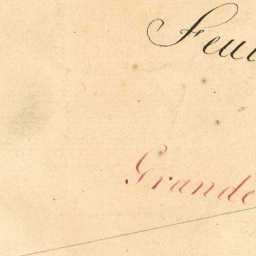 Feu
Grande